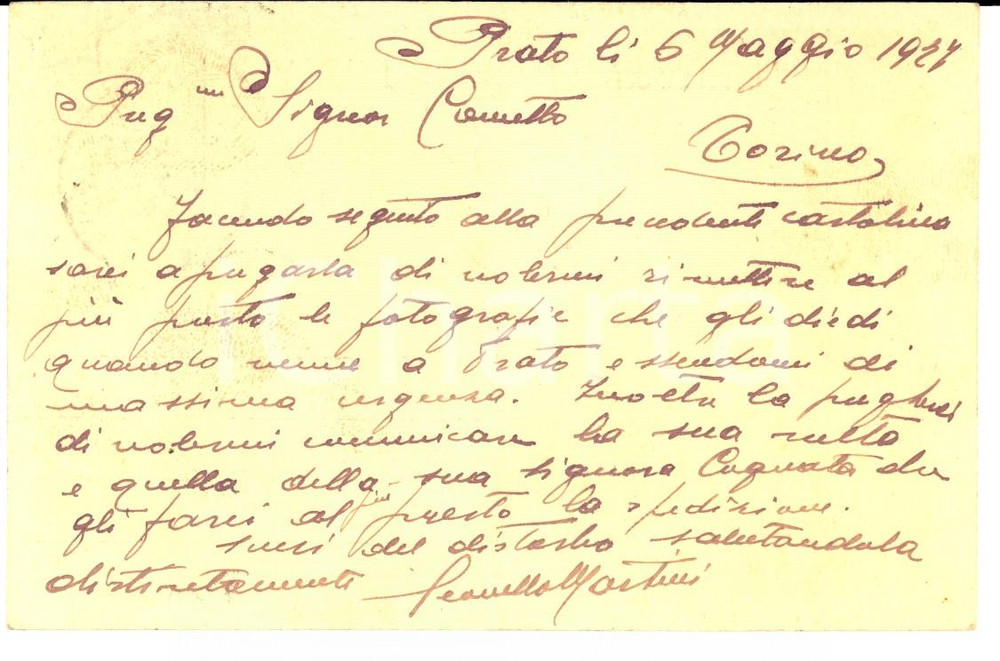 Prato lì 6 Maggio 1927
Preg mo Signor Cometto
Torino
Facendo seguito alla precedente cartolina
sarei a pregarla di volermi rimettere al
più presto le fotografie che gli diedi
quando venne a Prato essendomi di
massima urgenza. Inoltre la pregherei
di volermi comunicare la sua
e quella della sua signora Cognata che
gli farei al più presto la spedizione.
Scusi del disturbo salutandola
distintamente Martini